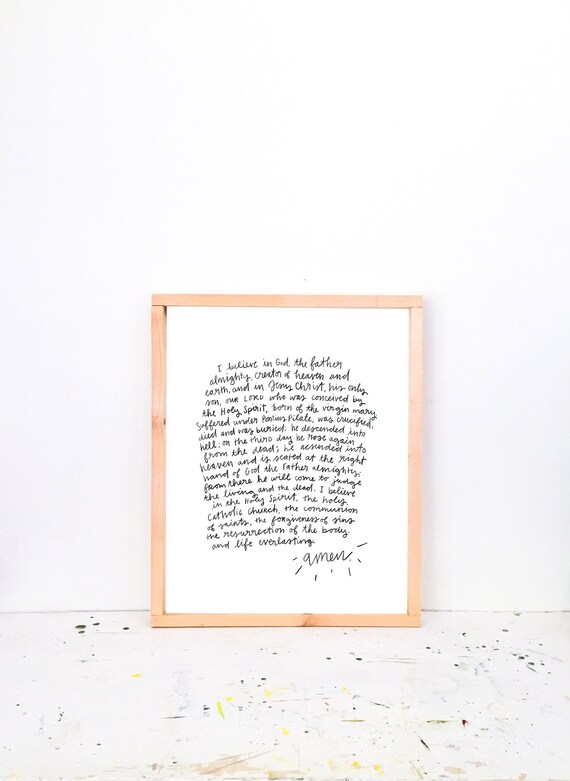 I believe in God the father
almighty, creator of heaven and
earth, and in Jesus Christ, his only
son, our LORD who was conceived by
the Holy Spirit, born of the virgin mary,
Suffered under Pontius Pilate, was crucified,
died and was buried; he descended into
hell; on the third day he rose again
from the dead; he ascended into
heaven and is seated at the right
hand of God the Father almighty;
from there he will come to judge
the living and the dead. I believe
in the Holy Spirit, the holy
Catholic Church, the communion
of saints, the forgiveness of sins
the resurrection of the body
and life everlasting.
amen.